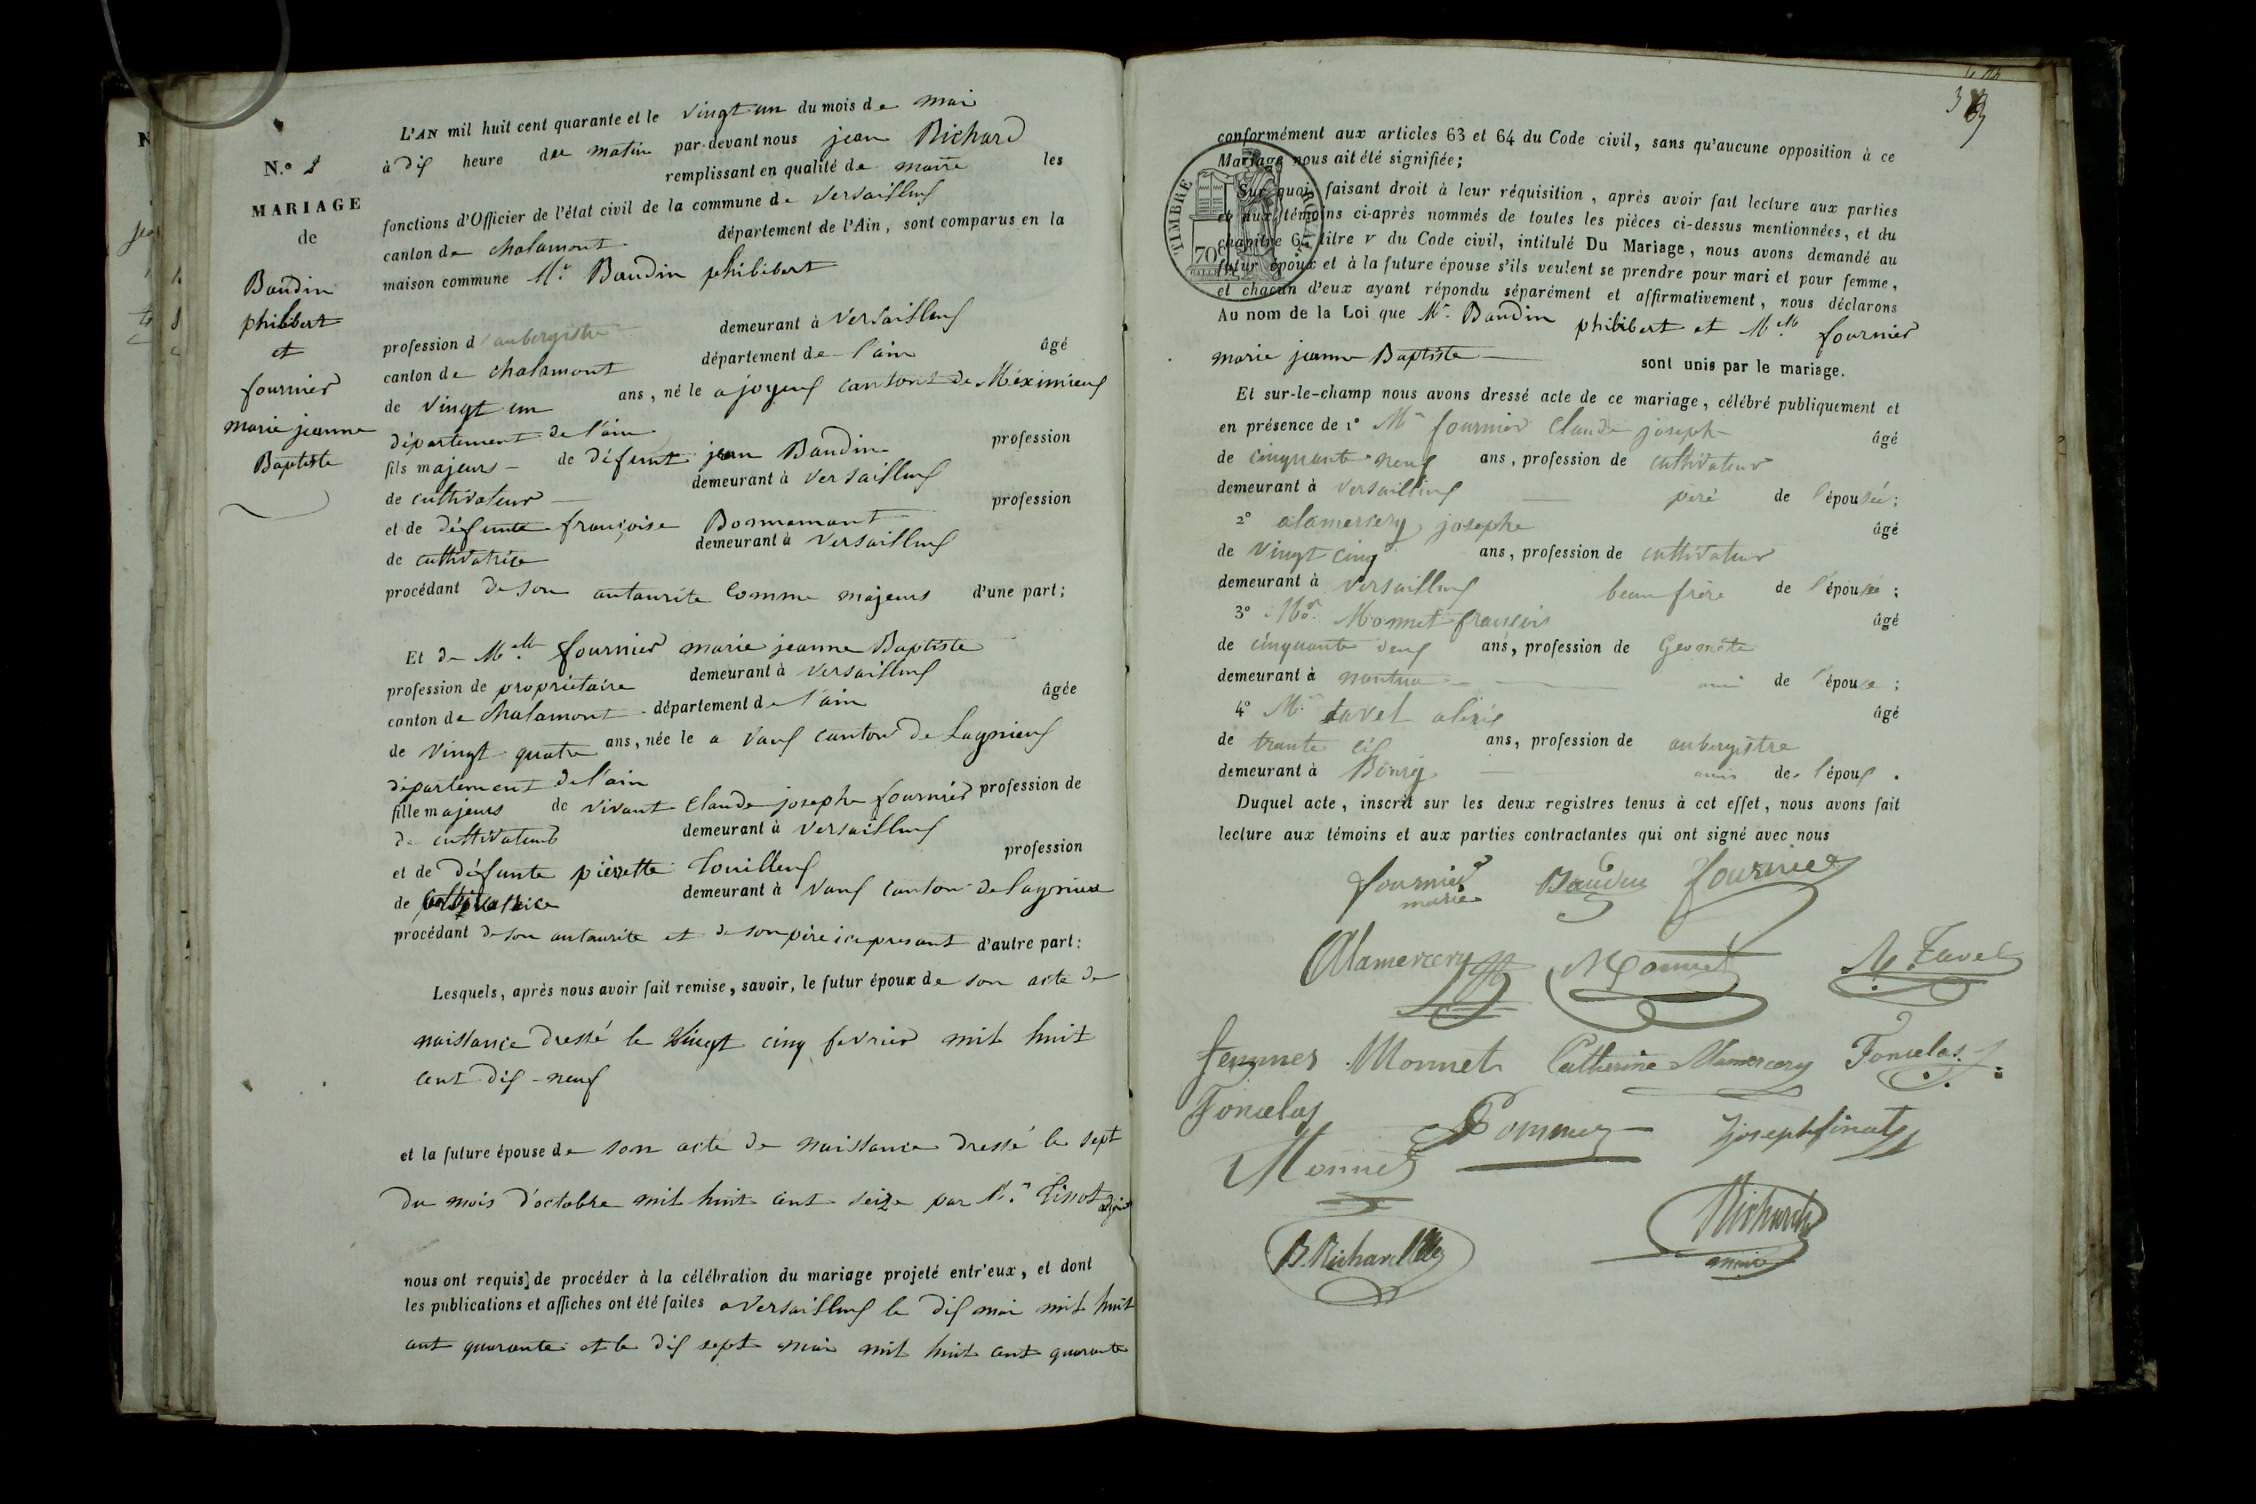 N.º 2
MARIAGE
de
Baudin
philibert
et
fournier
marie jeanne
Baptiste
L'AN mil huit cent quarante et le vingt un du mois de mai
à dix heure du matin par-devant nous jean Richard
remplissant en qualité de maire les
fonctions d'Officier de l'état civil de la commune de Versailleux
canton de chalamont département de l'Ain, sont comparus en la
maison commune Mr Baudin philibert
profession d'aubergiste demeurant à Versailleux
canton de chalamont département de l'ain âgé
de vingt un ans, né le a joyeux canton de Méximieux
département de l'ain
fils majeurs de défunt jean Baudin profession
de cultivateur demeurant à Versailleux
et de défunte françoise Bonnamant profession
de cultivatrice demeurant à Versailleux
procédant de son autaurite comme majeurs d'une part;
Et de Melle fournier marie jeanne Baptiste
profession de propriétaire demeurant à Versailleux
canton de chalamont département de l'ain âgée
de vingt quatre ans, née le a Vaux canton de Lagnieux
département de l'ain
fille majeurs de vivant Claude josephe fournier profession de
de cultivateur demeurant à Versailleux
et de défunte pièrette Touilleux profession
de demeurant à Vaux canton de lagnieux
procédant de son autaurite et de son père ici presant d'autre part:
Lesquels, après nous avoir fait remise, savoir, le futur époux de son acte de
naissance dressé le vingt cinq fevrier mil huit
cent dix-neuf
et la future épouse de son acte de naissance dressé le sept
du mois d'octobre mil huit cent seize par Mr Tinot adjoint
nous ont requis] de procéder à la célébration du mariage projeté entr'eux, et dont
les publications et affiches ont été faites a Versailleux le dix mai mil huit
cent quarante et le dix sept mai mil huit cent quarante
39
conformément aux articles 63 et 64 du Code civil, sans qu'aucune opposition à ce
Mariage nous ait été signifiée;
TIMBRE ROYAL
70C
Sur quoi, faisant droit à leur réquisition, après avoir fait lecture aux parties
et aux témoins ci-après nommés de toutes les pièces ci-dessus mentionnées, et du
chapitre 6, titre v du Code civil, intitulé Du Mariage, nous avons demandé au
futur époux et à la future épouse s'ils veulent se prendre pour mari et pour femme,
et chacun d'eux ayant répondu séparément et affirmativement, nous déclarons
Au nom de la Loi que Mr Baudin philibert et Melle fournier
marie jeanne Baptiste sont unis par le mariage.
Et sur-le-champ nous avons dressé acte de ce mariage, célébré publiquement et
en présence de 1º Mr fournier Claude joseph âgé
de cinquante neuf ans, profession de cultivateur
demeurant à Versailleux père de l'épousée;
2º alamercery josephe âgé
de vingt cinq ans, profession de cultivateur
demeurant à Versailleux beau frère de l'épouse;
3º Mr Monnet françois âgé
de cinquante deux ans, profession de Geomètre
demeurant à nantua ami de l'épouse;
4º Mr tavel alexis âgé
de trante six ans, profession de aubergistre
demeurant à Bourg amis de l'époux.
Duquel acte, inscrit sur les deux registres tenus à cet effet, nous avons fait
lecture aux témoins et aux parties contractantes qui ont signé avec nous
fournier marie Baudin fournier
Alamercery Monnet Tavel
femmes Monnet Catherine Alamercery
Monnet Pommez
B. Richard
Richard
maire